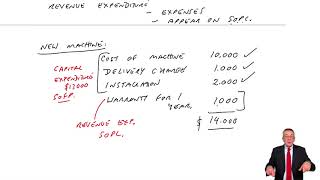 REVENUE EXPENDITURE - EXPENSES
- APPEAR ON SOPL.
NEW MACHINE:
COST OF MACHINE 10,000
CAPITAL EXPENDITURE $13000 SOFP.
DELIVERY CHARGE 1,000
INSTALLATION 2,000
WARRANTY FOR 1 YEAR. 1,000
$ 14,000
REVENUE EXP. SOPL.